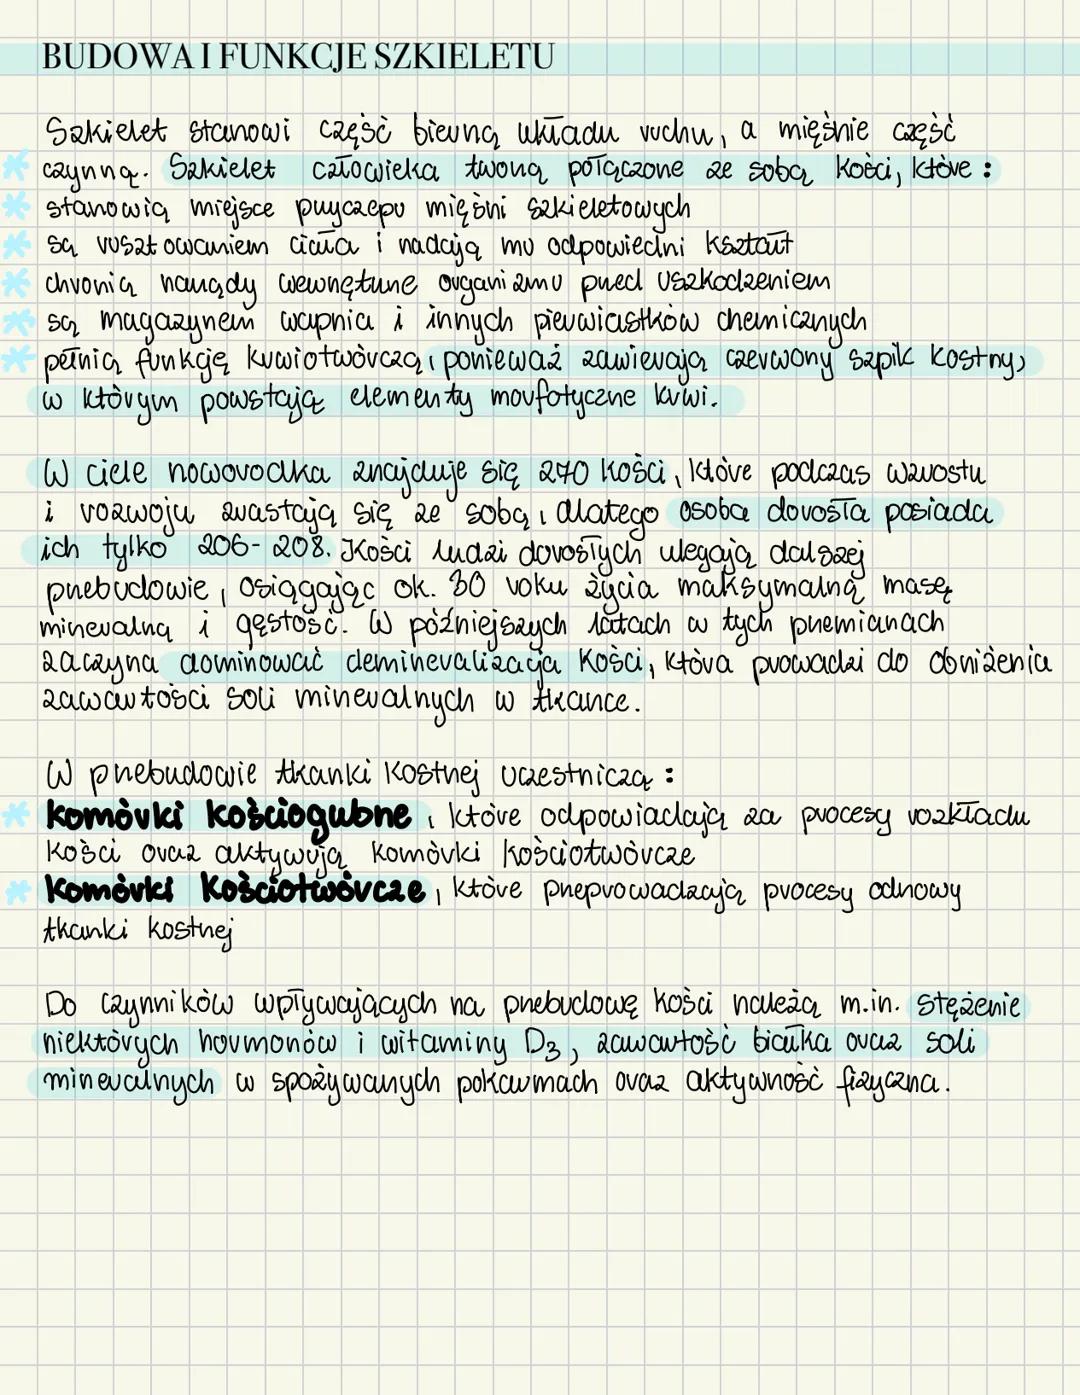 BUDOWA I FUNKCJE SZKIELETU
Szkielet stanowi część bierną układu ruchu, a mięśnie część
czynną. Szkielet człowieka tworzą połączone ze sobą kości, które :
stanowią miejsce przyczepu mięśni szkieletowych
są rusztowaniem ciała i nadają mu odpowiedni kształt
chronią narządy wewnętrzne organizmu przed uszkodzeniem
są magazynem wapnia i innych pierwiastków chemicznych
pełnią funkcję krwiotwórczą, ponieważ zawierają czerwony szpik kostny,
w którym powstają elementy morfotyczne krwi.
W ciele noworodka znajduje się 270 kości, które podczas wzrostu
i rozwoju zrastają się ze sobą, dlatego osoba dorosła posiada
ich tylko 206-208. Kości ludzi dorosłych ulegają dalszej
przebudowie, osiągając ok. 30 roku życia maksymalną masę
mineralną i gęstość. W późniejszych latach w tych przemianach
zaczyna dominować demineralizacja kości, która prowadzi do obniżenia
zawartości soli mineralnych w tkance.
W przebudowie tkanki kostnej uczestniczą :
komórki kościogubne, które odpowiadają za procesy rozkładu
kości oraz aktywują komórki kościotwórcze
komórki kościotwórcze, które przeprowadzają procesy odnowy
tkanki kostnej
Do czynników wpływających na przebudowę kości należą m.in. stężenie
niektórych hormonów i witaminy D3, zawartość białka oraz soli
mineralnych w spożywanych pokarmach oraz aktywność fizyczna.